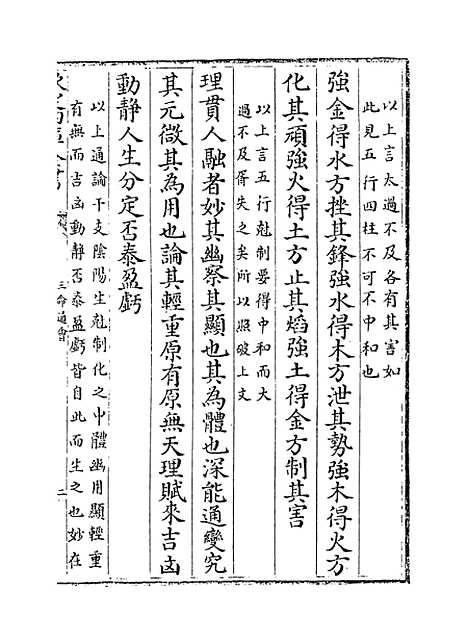 以上言太過不及各有其害如
此見五行四柱不可不中和也
強金得水方挫其鋒強水得木方泄其勢強木得火方
化其頑強火得土方止其焰強土得金方制其害
以上言五行尅制要得中和而大
過不及胥失之矣所以照破上文
理貫人融者妙其幽察其顯也其為體也深能通變究
其元微其為用也論其輕重原有原無天理賦來吉凶
動靜人生分定否泰盈虧
以上通論干支陰陽生尅制化之中體幽用顯輕重
有無而吉凶動靜否泰盈虧皆自此而生之也妙在
三命通會
二